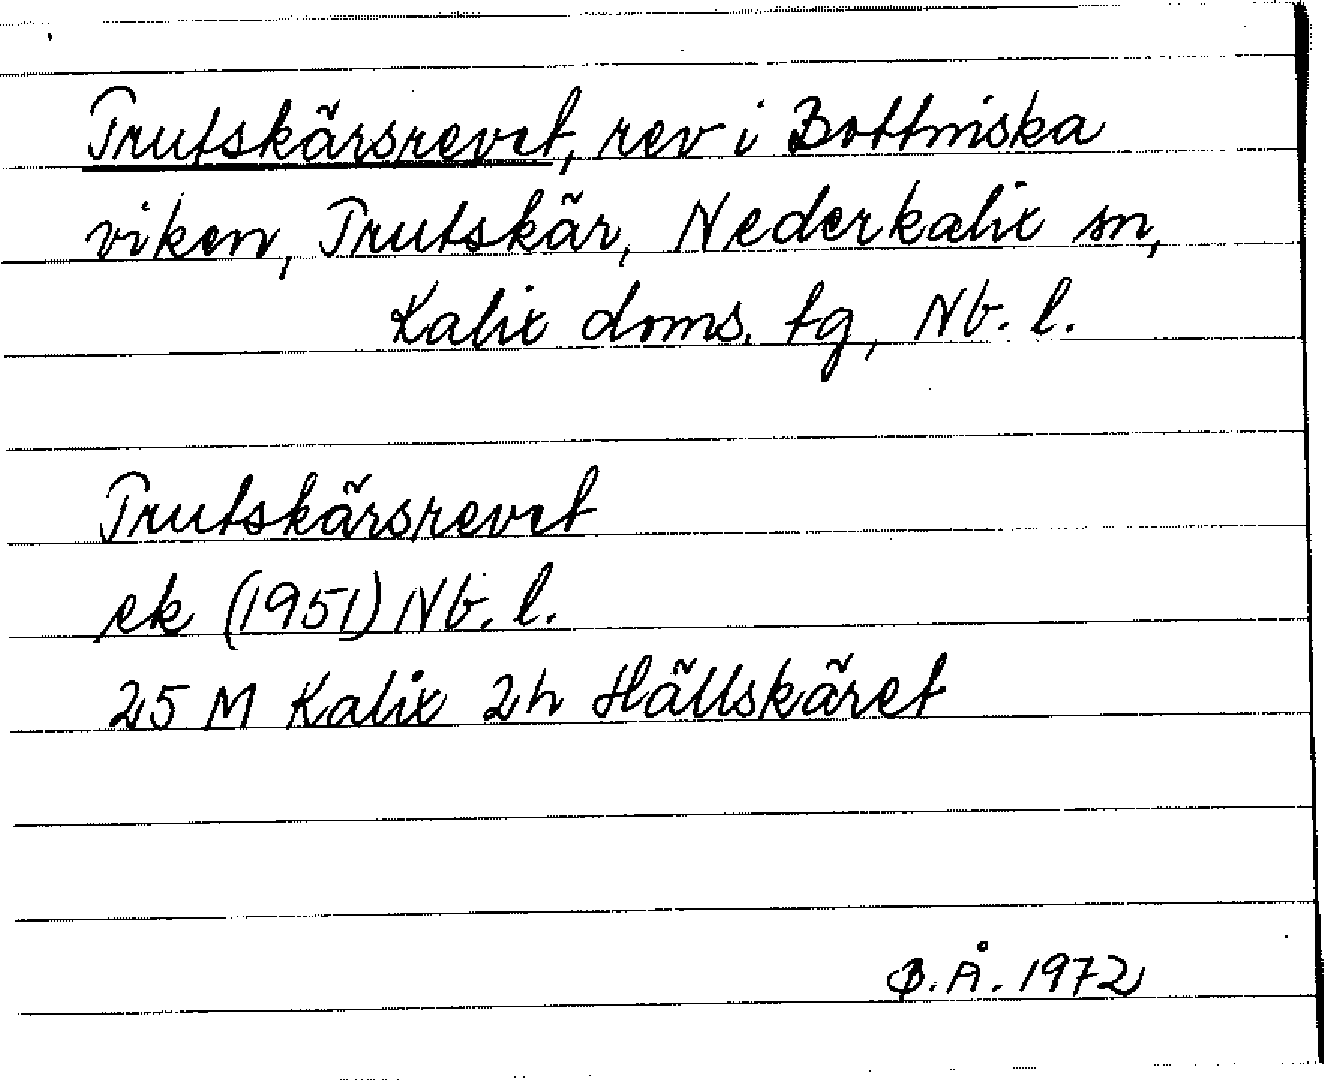 Trutskärsrevet, rev i Bottniska
viken, Trutskär, Nederkalix sn,
Kalix doms. tg, Nb. l.
Trutskärsrevet
ek (1951) Nb. l.
25 M Kalix 2h Hällskäret
B.Å. 1972